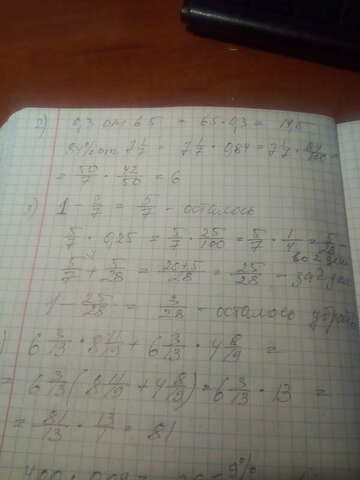 2) 0,3 от 65 = 65 · 0,3 = 19,5
84% от 7 1/7 = 7 1/7 · 0,84 = 7 1/7 ·
= 50/7 · 42/50 = 6
3) 1 - 2/7 = 5/7 - осталось
5/7 · 0,25 = 5/7 · 25/100 = 5/7 · 1/4 = 5/28
5/7 + 5/28 = (20+5)/28 = 25/28 -
1 - 25/28 = 3/28 - осталось
) 6 3/13 · 8 11/19 + 6 3/13 · 4 8/19 =
= 6 3/13 (8 11/19 + 4 8/19) = 6 3/13 · 13 =
= 81/13 · 13/1 = 81